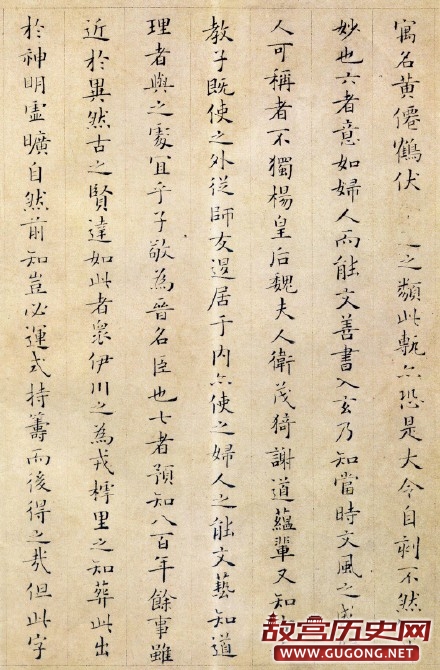 寓名黄僊鶴伏之之類此甎亦恐是大令自刻不然
妙也六者意如婦人而能文善書入玄乃知當時文風之
人可稱者不獨楊皇后魏夫人衛茂猗謝道蘊輩又知
教子既使之外從師友退居于内亦使之婦人之能文藝知道
理者與之處宜乎子敬為晉名臣也七者預知八百年餘事雖
近於異然古之賢達如此者衆伊川之為戎樗里之知葬此出
於神明虛曠自然前知豈必運式持籌而後得之哉但此字
故宫历史网
www.GUGONG.net